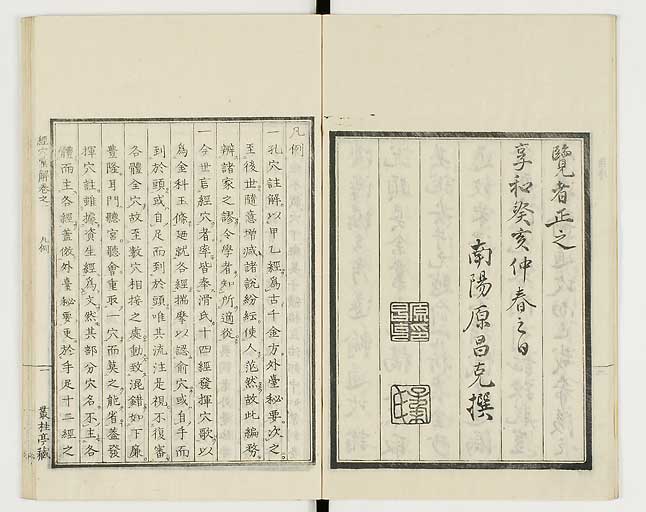 覽者正之
享和癸亥仲春之日
南陽原昌克撰
凡例
一孔穴註解以甲乙經為古千金方外臺秘要次之
至後世隨意增減諸說紛紜使人茫然故此編務
辨諸家之謬令學者知所適從
一今世言經穴者率皆奉滑氏十四經發揮穴歌以
為金科玉條廼就各經揣摩以認俞穴或自手而
到於頭或自足而到於頭唯其流注是視不復審
各體全穴故至數穴相接之處動致混錯如下廉
豐隆耳門聽宮聽會重取一穴而莫之能省蓋發
揮穴註雖據資生經為文然其部分穴名不主各
體而主各經蓋倣外臺秘要更於手足十二經之
經穴彙解卷之
凡例
一
叢桂亭藏